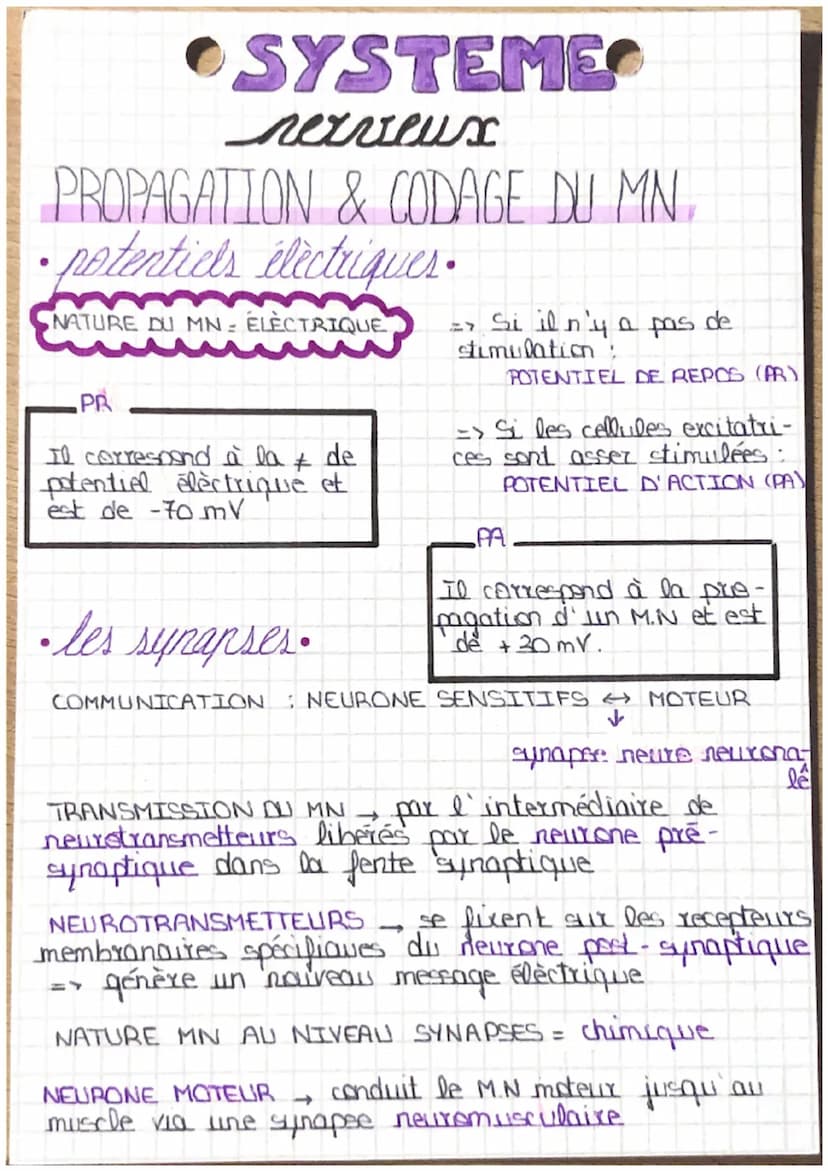 SYSTEME
nerveux
PROPAGATION & CODAGE DU MN
• potentiels élèctriques •
NATURE DU MN = ÉLÈCTRIQUE
=> Si il n'y a pas de
stimulation :
POTENTIEL DE REPOS (PR)
=> Si les cellules excitatri-
ces sont assez stimulées :
POTENTIEL D'ACTION (PA)
PR
Il correspond à la ≠ de
potentiel élèctrique et
est de -70 mV
PA
Il correspond à la pro-
pagation d'un M.N et est
de +30 mV.
• les synapses •
COMMUNICATION : NEURONE SENSITIFS ↔ MOTEUR
↓
synapse neuro neurona-
le
TRANSMISSION DU MN → par l'intermédiaire de
neurotransmetteurs libérés par le neurone pré-
synaptique dans la fente synaptique
NEUROTRANSMETTEURS → se fixent sur les recepteurs
membranaires spécifiques du neurone post-synaptique
=> génère un nouveau message élèctrique
NATURE MN AU NIVEAU SYNAPSES = chimique
NEURONE MOTEUR → conduit le M.N moteur jusqu'au
muscle via une synapse neuromusculaire